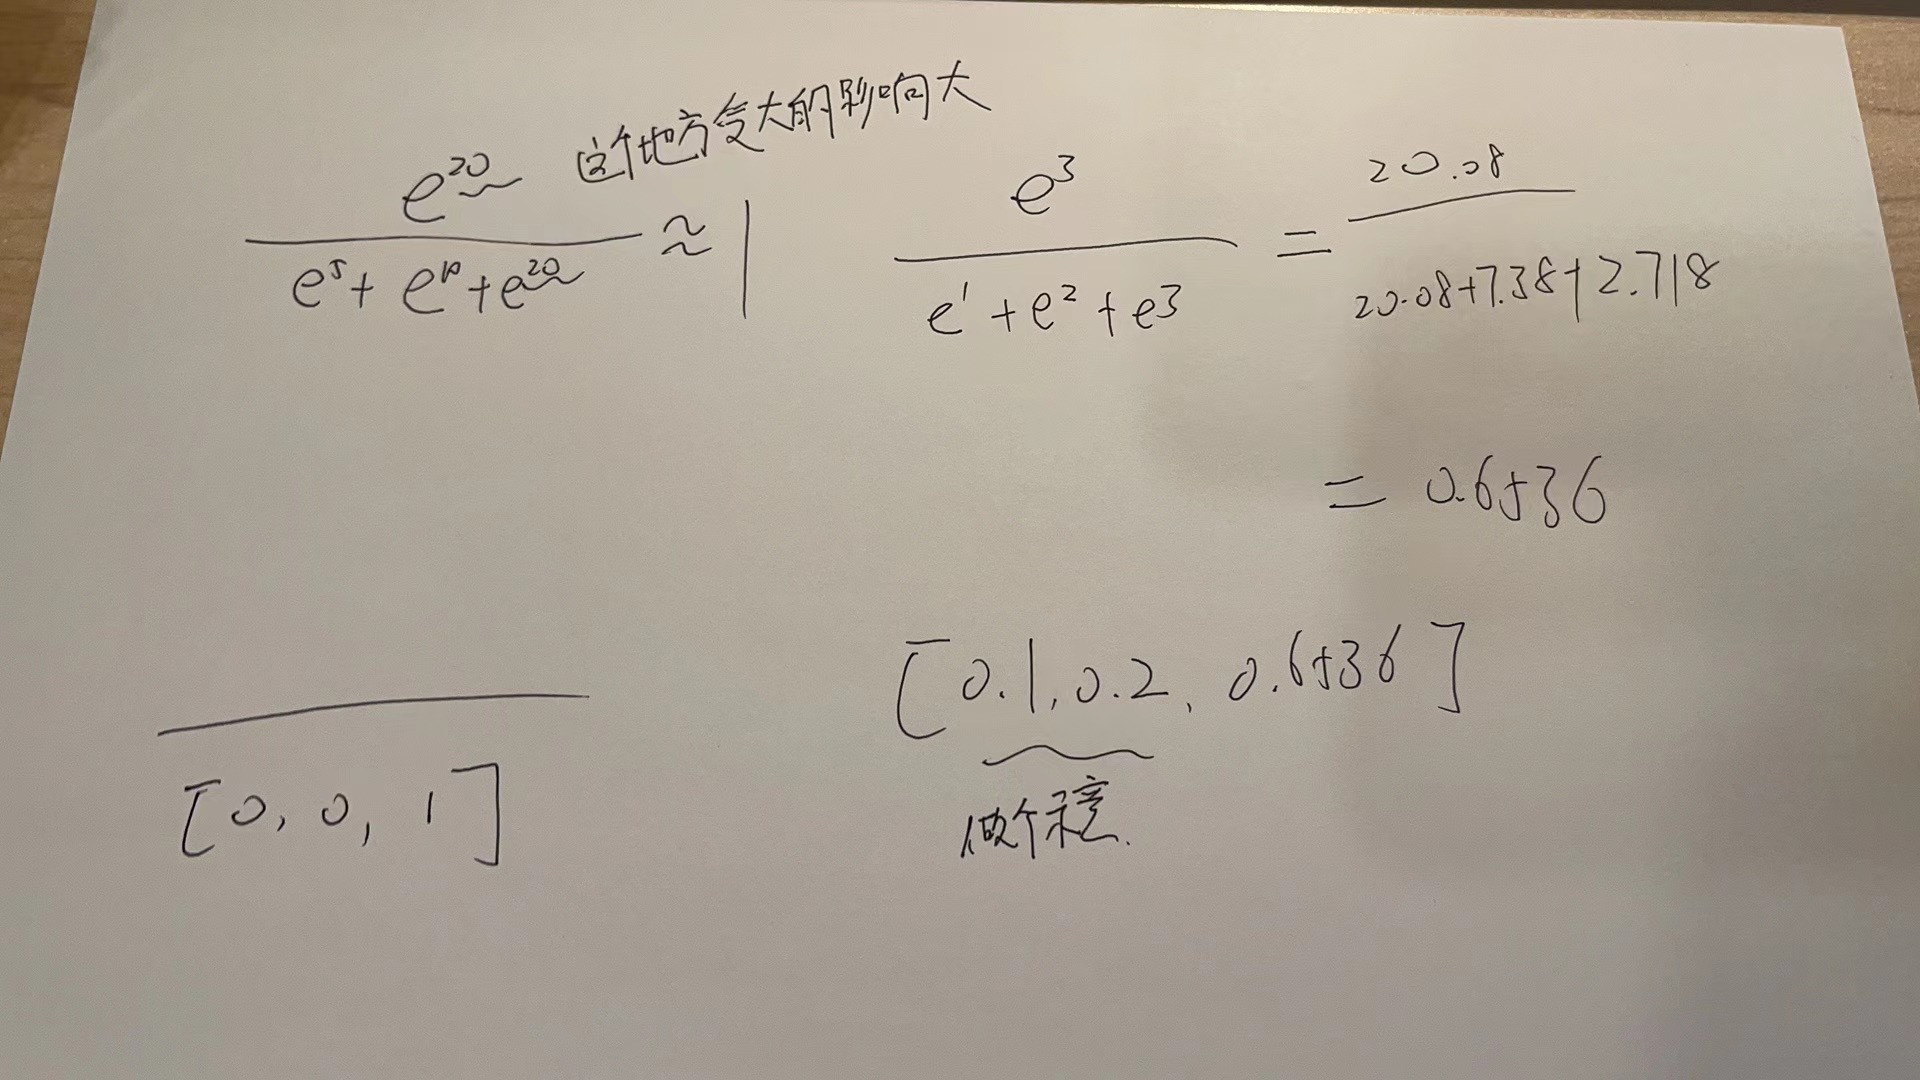 这个地方变大的影响大
e^20 / (e^5 + e^10 + e^20) ≈ 1
e^3 / (e^1 + e^2 + e^3) = 20.08 / (20.08+7.38+2.718)
= 0.6536
[0.1, 0.2, 0.6536]
[0, 0, 1]
做个示意.